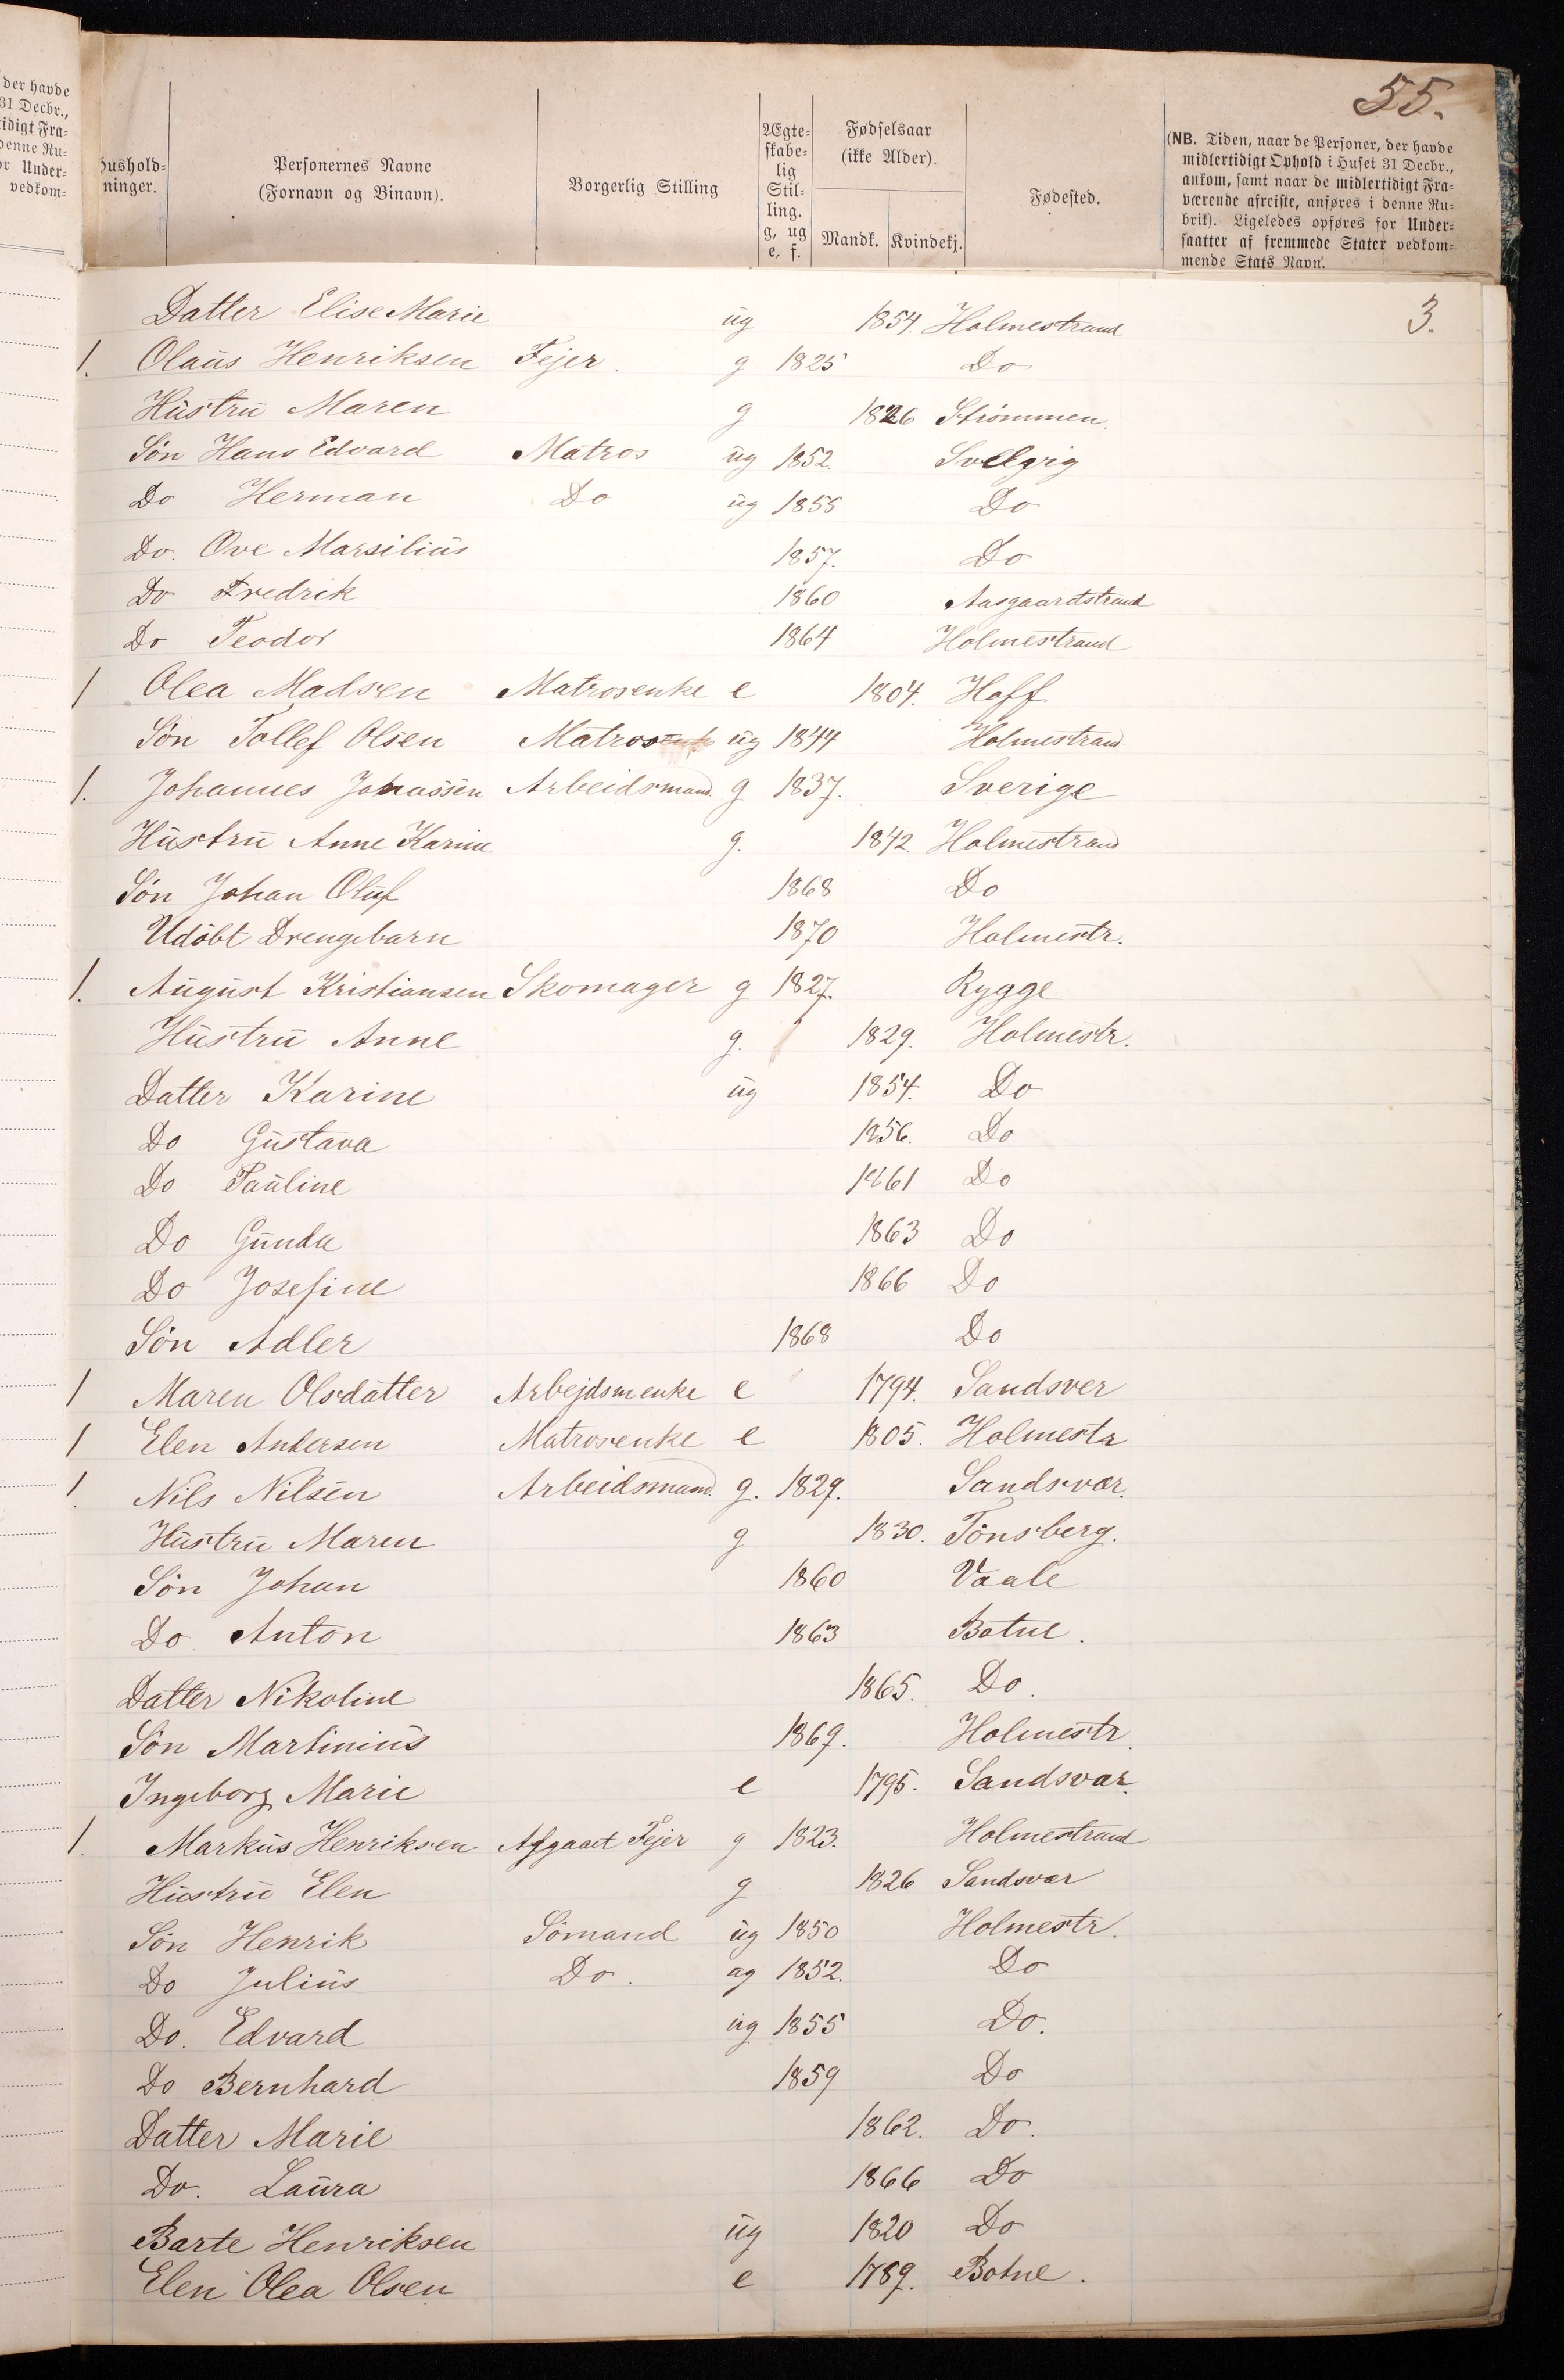 der havde
31 Decbr.,
tidigt Fra-
denne Ru-
or Under-
vedkom-
55.
Hushold-
ninger.
Personernes Navne
(Fornavn og Binavn).
Borgerlig Stilling
Ægte-
skabe-
lig
Stil-
ling.
g, ug
e, f.
Fødselsaar
(ikke Alder).
Mandk. Kvindekj.
Fødested.
(NB. Tiden, naar de Personer, der havde
midlertidigt Ophold i Huset 31 Decbr.,
ankom, samt naar de midlertidigt Fra-
værende afreiste, anføres i denne Ru-
brik). Ligeledes opføres for Under-
saatter af fremmede Stater vedkom-
mende Stats Navn.
Datter Elise Marie ug 1854. Holmestrand 3.
1. Olaus Henriksen Fejer. g 1825 Do
Hustru Maren g 1826 Strömmen.
Sön Hans Edvard Matros ug 1852. Svelgvig
Do Herman Do ug 1855 Do
Do. Ove Marsilius 1857. Do
Do Fredrik 1860 Aasgaardstrand
Do Teodor 1864 Holmestrand
1 Olea Madsen Matrosenke e 1804. Hoff
Sön Tollef Olsen Matros ug 1844 Holmestrand
1. Johannes Johnassen Arbeidsmand. g 1837. Sverige
Hustru Anne Karine g. 1842. Holmestrand
Sön Johan Oluf 1868 Do
Udöbt Drengebarn 1870 Holmestr.
1. August Kristiansen Skomager g 1827. Rygge
Hustru Anne g. 1829. Holmestr.
Datter Karine ug 1854. Do
Do Gustava 1856. Do
Do Pauline 1861 Do
Do Gunda 1863 Do
Do Josefine 1866 Do
Sön Adler 1868 Do
1 Maren Olsdatter Arbejdsmenke e 1794. Sandsver
1 Elen Andersen Matrosenke e 1805. Holmestr
1. Nils Nilsen Arbeidsmand. g. 1829. Sandsvær.
Hustru Maren g 1830. Tönsberg.
Sön Johan 1860 Vaale
Do. Anton 1863 Botne.
Datter Nikoline 1865. Do.
Sön Martinius 1869. Holmestr.
Ingeborg Marie e 1795. Sandsvær.
1. Markus Henriksen Afgaaet Fejer g 1823. Holmestrand
Hustru Elen g 1826 Sandsvær
Sön Henrik Sömand ug 1850 Holmestr.
Do Julius Do. ug 1852. Do
Do. Edvard ug 1855 Do.
Do Bernhard 1859 Do
Datter Marie 1862. Do.
Do. Laura 1866 Do
Barte Henriksen ug 1820 Do
Elen Olea Olsen e 1789. Botne.